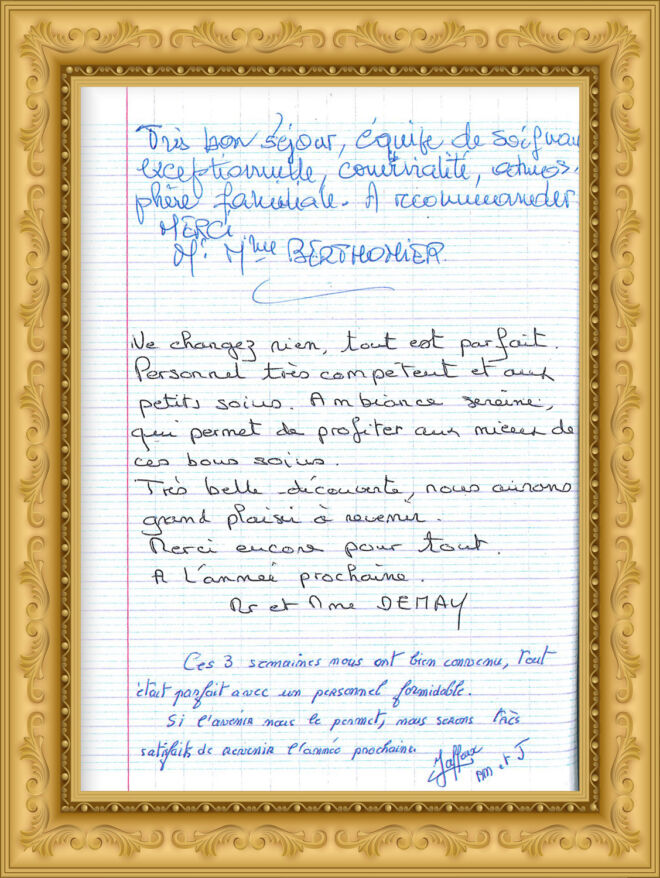 Très bon séjour, équipe de soignan
exceptionnelle, convivialité, atmos-
phère familiale. A recommander
MERCI
Mr Mme BERTHOMIER
Ne changez rien, tout est parfait.
Personnel très compétent et aux
petits soins. Ambiance sereine,
qui permet de profiter aux mieux de
ces bons soins.
Très belle découverte, nous aurons
grand plaisir à revenir.
Merci encore pour tout.
A l'année prochaine.
Mr et Mme DEMAY
Ces 3 semaines nous ont bien convenu, tout
était parfait avec un personnel formidable.
Si l'avenir nous le permet, nous serons très
satisfaits de revenir l'année prochaine
AM et J